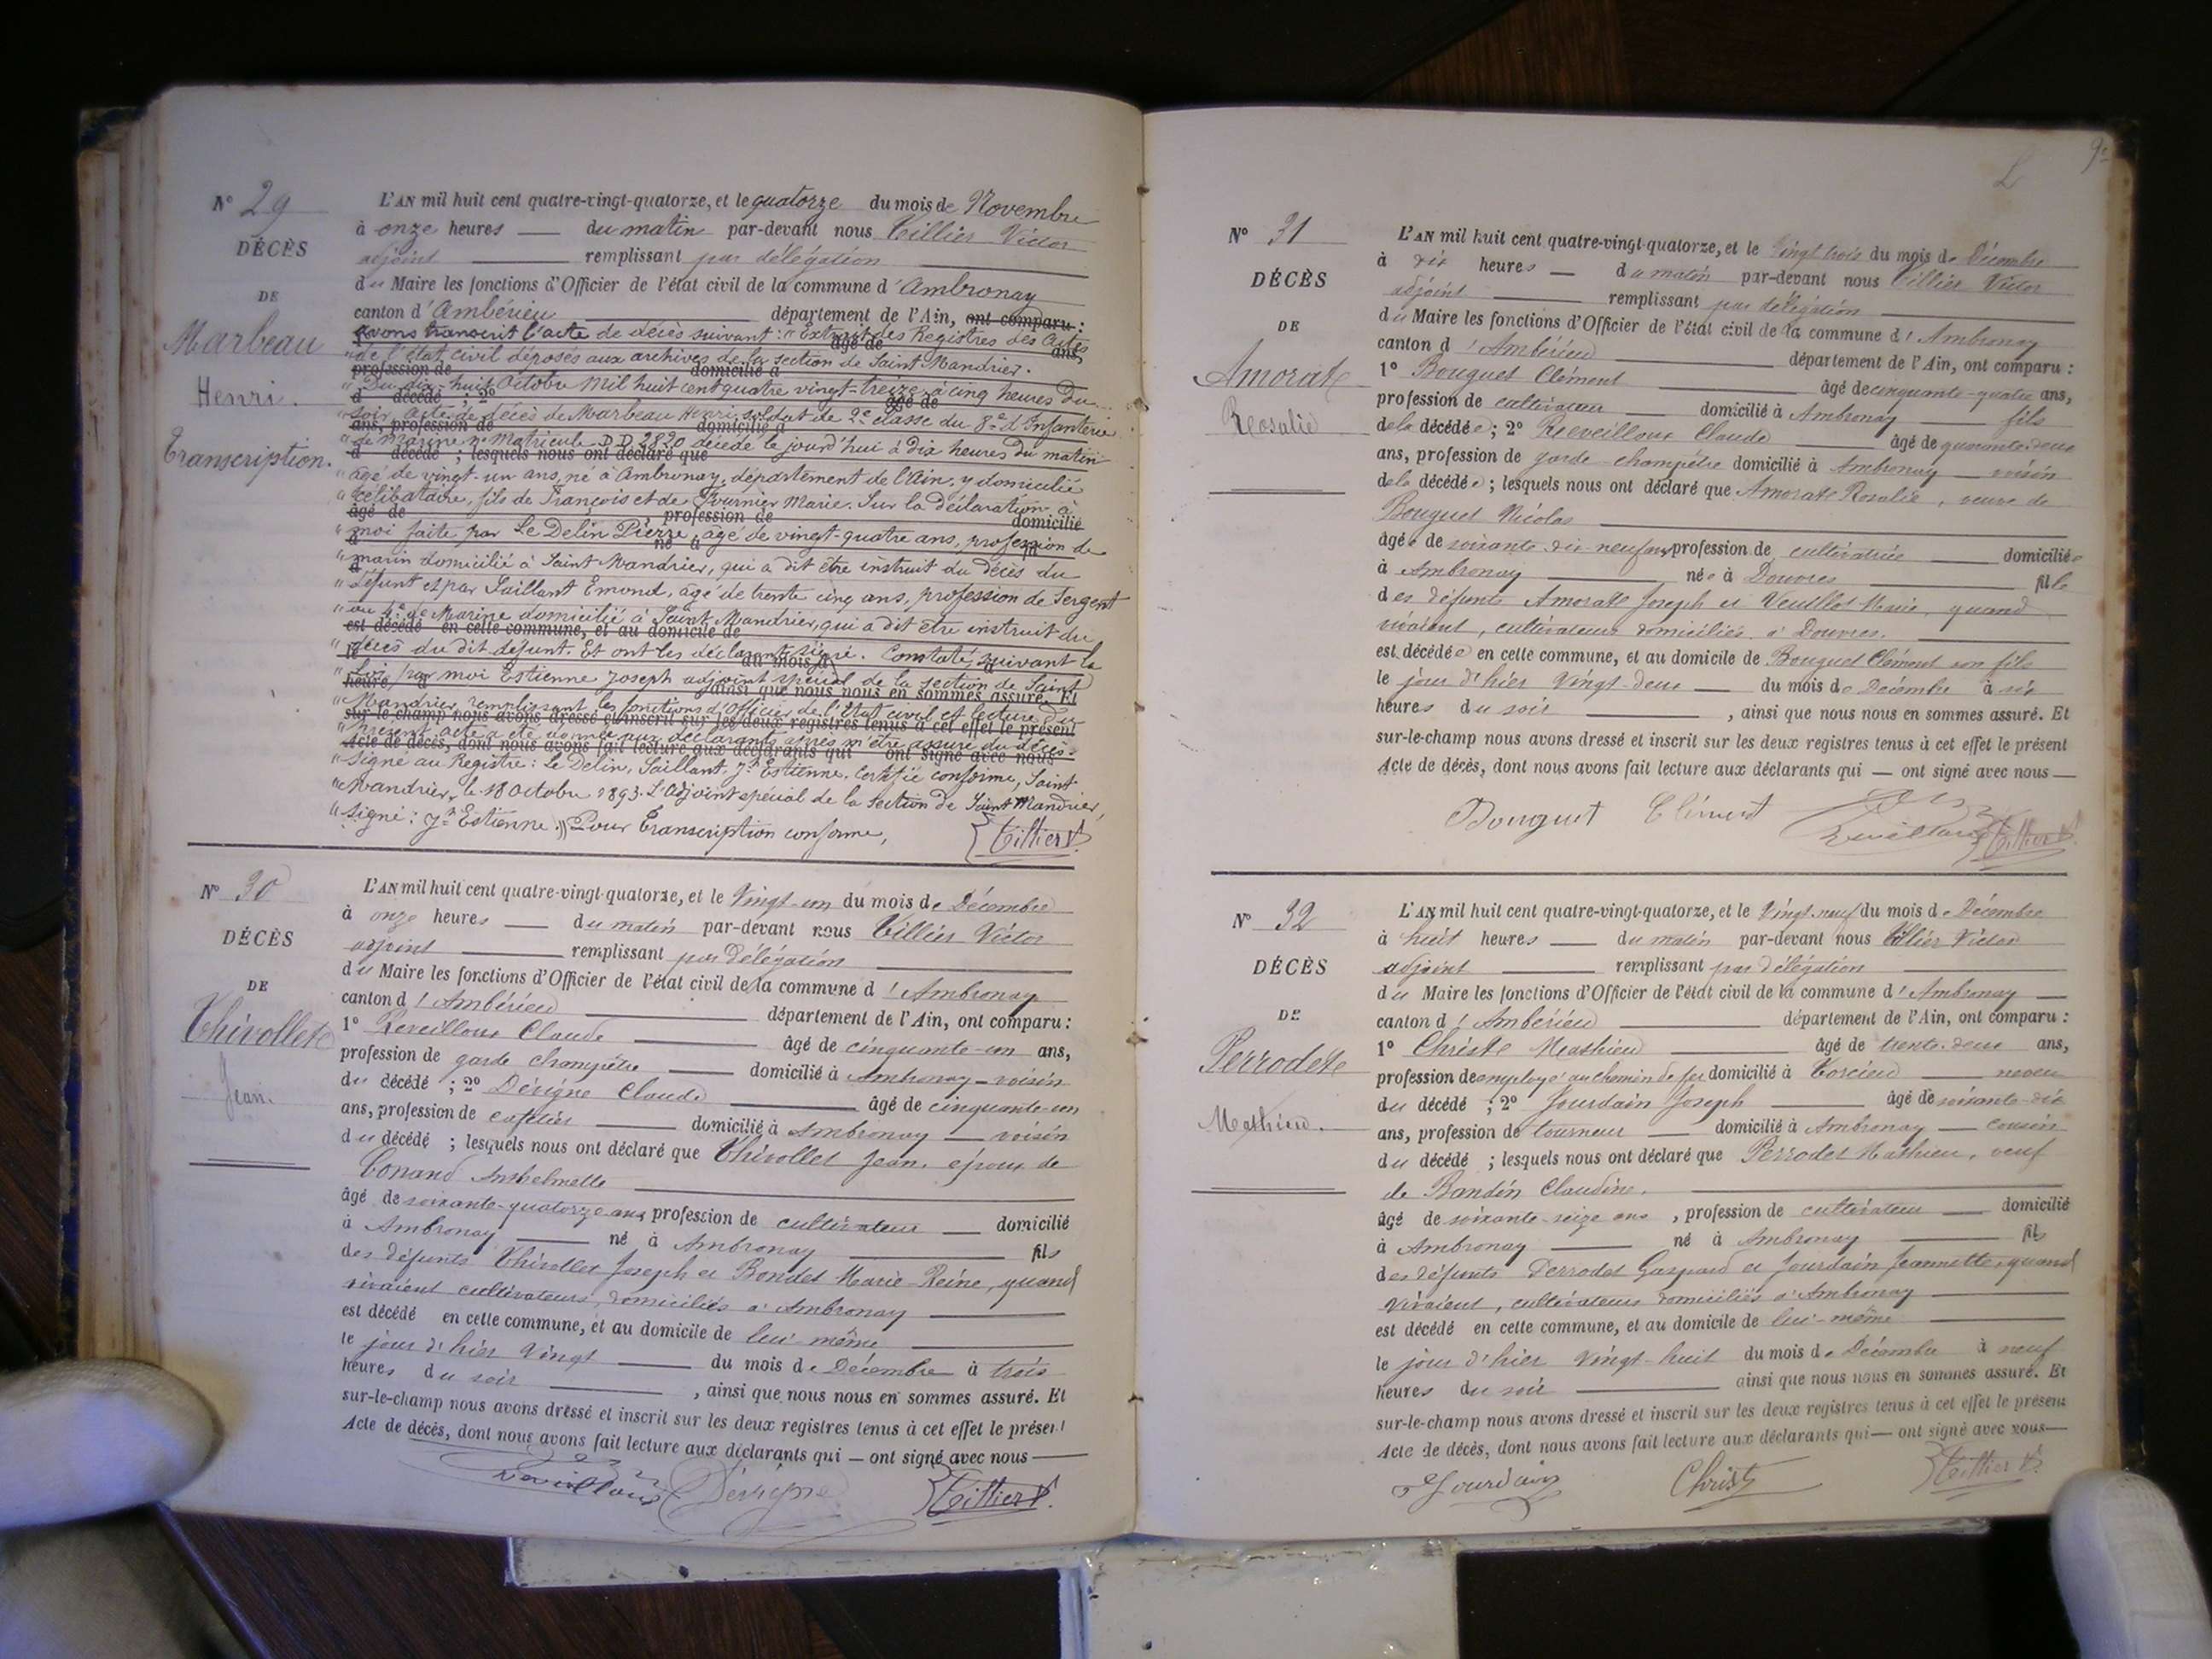 N° 29
DÉCÈS
DE
Marbeau
Henri.
Transcription.
L'AN mil huit cent quatre-vingt-quatorze, et le quatorze du mois de Novembre
à onze heures — du matin par-devant nous Tillier Victor
adjoint — remplissant par délégation
du Maire les fonctions d'Officier de l'état civil de la commune d'Ambronay
canton d'Ambérieu département de l'Ain, ont comparu :
avons transcrit l'acte de décès suivant : "Extrait des Registres des Actes
"de l'état civil déposés aux archives de la section de Saint Mandrier.
"Du dix-huit Octobre Mil huit cent quatre vingt-treize à cinq heures du
"soir, acte de décès de Marbeau Henri soldat de 2e classe du 8e d'Infanterie
"de Marine no Matricule D.D 2820 décédé le jourd'hui à dix heures du matin
"âgé de vingt-un ans, né à Ambronay, département de l'Ain, y domicilié
"célibataire, fils de François et de Fournier Marie. Sur la déclaration à
"moi faite par Le Delin Pierre, âgé de vingt-quatre ans, profession de
"marin domicilié à Saint Mandrier, qui a dit être instruit du décès du
"défunt et par Saillant Emond, âgé de trente cinq ans, profession de Sergent
"au 4e de Marine domicilié à Saint Mandrier, qui a dit être instruit du
"décès du dit défunt. Et ont les déclarants signé. Constaté, suivant la
"Loi, par moi Estienne Joseph adjoint spécial de la section de Saint
"Mandrier, remplissant les fonctions d'Officier de l'état civil et lecture du
"présent acte a été donnée aux déclarants après m'être assuré du décès.
"Signé au Registre : Le Delin, Saillant, Jh Estienne. Certifié conforme, Saint
"Mandrier, le 18 Octobre 1893. L'adjoint spécial de la section de Saint Mandrier,
"signé : Jh Estienne." Pour Transcription conforme,
Tillier V.
N° 30
DÉCÈS
DE
Thivollet
Jean.
L'AN mil huit cent quatre-vingt-quatorze, et le Vingt-un du mois de Décembre
à onze heures — du matin par-devant nous Tillier Victor
adjoint — remplissant par délégation
du Maire les fonctions d'Officier de l'état civil de la commune d'Ambronay
canton d'Ambérieu département de l'Ain, ont comparu :
1° Reveilloux Claude âgé de cinquante-un ans,
profession de garde champêtre domicilié à Ambronay — voisin
du décédé ; 2° Dérigne Claude âgé de cinquante-un
ans, profession de cafetier domicilié à Ambronay — voisin
du décédé ; lesquels nous ont déclaré que Thivollet Jean, époux de
Conand Anthelmette
âgé de soixante-quatorze ans profession de cultivateur — domicilié
à Ambronay né à Ambronay fils
des défunts Thivollet Joseph et Bondet Marie-Reine, quand
vivaient cultivateurs, domiciliés à Ambronay
est décédé en cette commune, et au domicile de lui-même
le jour d'hier Vingt du mois de Décembre à trois
heures du soir , ainsi que nous nous en sommes assuré. Et
sur-le-champ nous avons dressé et inscrit sur les deux registres tenus à cet effet le présent
Acte de décès, dont nous avons fait lecture aux déclarants qui — ont signé avec nous —
Reveilloux Dérigne Tillier V.
N° 31
DÉCÈS
DE
Amorate
Rosalie
L'AN mil huit cent quatre-vingt-quatorze, et le Vingt trois du mois de Décembre
à dix heures — du matin par-devant nous Tillier Victor
adjoint — remplissant par délégation
du Maire les fonctions d'Officier de l'état civil de la commune d'Ambronay
canton d'Ambérieu département de l'Ain, ont comparu :
1° Bouquet Clément âgé de cinquante-quatre ans,
profession de cultivateur domicilié à Ambronay fils
de la décédée ; 2° Reveilloux Claude âgé de quarante-deux
ans, profession de garde champêtre domicilié à Ambronay — voisin
de la décédée ; lesquels nous ont déclaré que Amorate Rosalie, veuve de
Bouquet Nicolas
âgée de soixante dix-neuf ans, profession de cultivatrice domiciliée
à Ambronay née à Douvres fille
des défunts Amorate Joseph et Veuillet Marie, quand
vivaient, cultivateurs domiciliés à Douvres.
est décédée en cette commune, et au domicile de Bouquet Clément son fils
le jour d'hier Vingt-deux du mois de Décembre à six
heures du soir , ainsi que nous nous en sommes assuré. Et
sur-le-champ nous avons dressé et inscrit sur les deux registres tenus à cet effet le présent
Acte de décès, dont nous avons fait lecture aux déclarants qui — ont signé avec nous —
Bouquet Clément Reveilloux Tillier V.
N° 32
DÉCÈS
DE
Perrodet
Mathieu.
L'AN mil huit cent quatre-vingt-quatorze, et le Vingt-neuf du mois de Décembre
à huit heures — du matin par-devant nous Tillier Victor
adjoint — remplissant par délégation
du Maire les fonctions d'Officier de l'état civil de la commune d'Ambronay
canton d'Ambérieu département de l'Ain, ont comparu :
1° Christe Mathieu âgé de trente-deux ans,
profession de employé au chemin de fer domicilié à Torcieu — neveu
du décédé ; 2° Jourdain Joseph âgé de soixante-dix
ans, profession de tourneur domicilié à Ambronay — cousin
du décédé ; lesquels nous ont déclaré que Perrodet Mathieu, veuf
de Bandin Claudine.
âgé de soixante-seize ans , profession de cultivateur — domicilié
à Ambronay né à Ambronay fils
des défunts Perrodet Gaspard et Jourdain Jeannette, quand
vivaient, cultivateurs domiciliés à Ambronay
est décédé en cette commune, et au domicile de lui-même
le jour d'hier Vingt-huit du mois de Décembre à neuf
heures du soir ainsi que nous nous en sommes assuré. Et
sur-le-champ nous avons dressé et inscrit sur les deux registres tenus à cet effet le présent
Acte de décès, dont nous avons fait lecture aux déclarants qui — ont signé avec nous —
Jourdain Christ Tillier V.